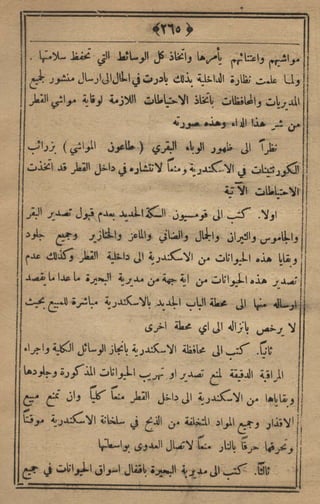 ﴿ ٢٦٥ ﴾
مواشيهم واعتنائهم بأمرها واتخاذ كل الوسائط التي تحفظ سلامتها .
ولما علمت نظارة الداخلية بذلك بادرت في الحال الى ارسال منشور لجميع
المديريات والمحافظات باتخاذ الاحتياطات اللازمة لوقاية مواشي القطر
من شر هذا الداء وهذه صورته
نظراً الى ظهور الوباء البقري (طاعون المواشي) بزرائب
الكورنتينات في الاسكندرية ومنعاً لانتشاره في داخل القطر قد اتخذت
الاحتياطات الآتية
اولا. كتب الى قومسيون السكة الحديد بعدم قبول تصدير البقر
والجاموس والثيران والجمال والضاني والماعز والخنازير وجميع جلود
وبقايا هذه الحيوانات من الاسكندرية الى داخلية القطر وكذلك عدم
تصدير هذه الحيوانات من اية جهة من مديرية البحيرة ما عدا ما يقصد
ارساله منها الى محطة الباب الجديد بالاسكندرية مباشرة للمبيع بحيث
لا يرخص بانزاله الى اي محطة اخرى
ثانياً. كتب الى محافظة الاسكندرية بانجاز الوسائل الكلية واجراء
المراقبة الدقيقة لمنع تصدير او تهريب الحيوانات المذكورة وجلودها
وبقاياها من الاسكندرية الى داخل القطر منعاً كلياً وان تمنع مبيع
الاقذار وجميع المواد المتخلفة من الذبح في سلخانة الاسكندرية موقتاً
وتحرقها حرقاً بالنار منعاً لاتصال العدوى بواسطتها
ثالثاً. كتب الى مديرية البحيرة باقفال اسواق الحيوانات في جميع